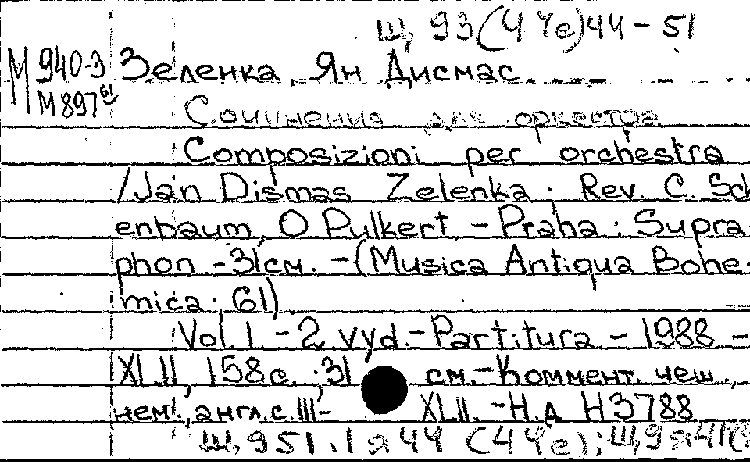 Щ 93(4Че)44-51
М 940-3 Зеленка, Ян Дисмас
М897⁶¹
Сочинения для оркестра
Composizioni per orchestra
/Jan Dismas Zelenka. Rev. C. Sd
enbaum, O Pulkert. - Praha: Supra
phon - 31см. - (Musica Antiqua Bohe-
mica: 61)
Vol. 1. - 2 vyd. - Partitura - 1988 -
XLII, 158с. ; 31 см. - Коммент. чеш.,
нем., англ. с. III- XLII. - Н.д. Н3788
Щ 951.1я44 (4Че); Щ9я41(